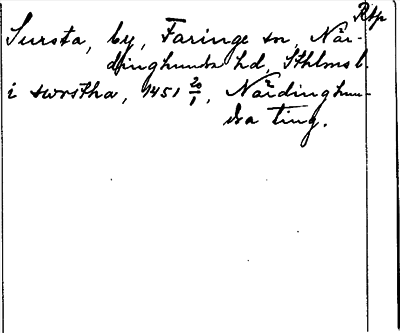 Rtp
Sursta, by, Faringe sn, När-
dinghundra hd, Sthlms l.
i swrstha, 1451 20/1, Närdinghun-
dra ting.